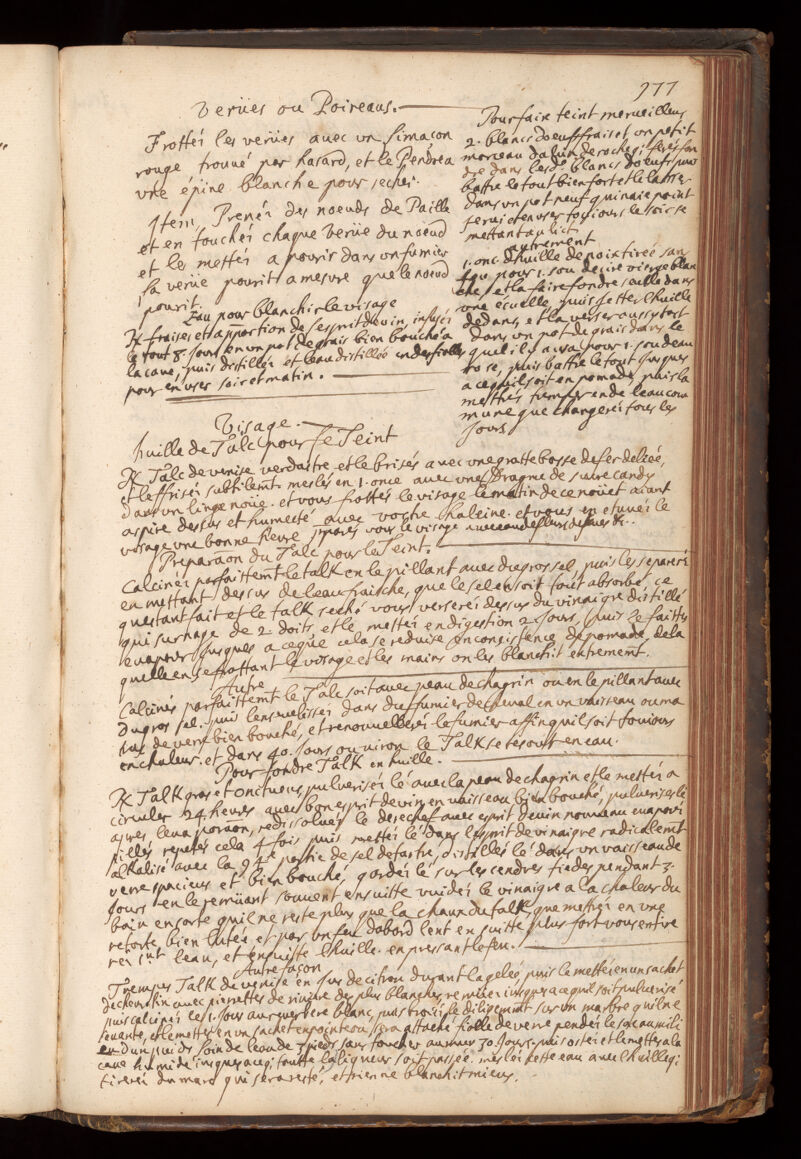 977
Verües ou Poireaus.
Frottés les verües avec un Limaçon
rouge trouué par hasard, et le Pendre a
une épine blanche pour secher.
Item, Prenés des noeuds de Paille
et en touchés chaque Verüe du noeud
et les mettés a pourir dans un fumier
la verüe pourit a mesure que le noeud
pourit.
Eau pour blanchir le visage
fraises et a proportion de l'esprit de vin, infusés
le tout 8. jours en un pot de grais bien bouché a
la cave, puis distillés et l'eau distillée
pour en user soir et matin.
Pour faire teint merveilleux
2. blancs d'oeuf frais et un petit
morceau d'alun de roche
dans les 2. blancs d'oeufs puis
battre le tout bien fort et le laisser
dans un pot neuf qui n'aie point
servi et en user toujours le soir se
mettant au lict
autrement
1. onc. d'huille de poix tirée sans
feu pour 1. sou de cire vierge blan
che, et la faire fondre seulle dans
une escuelle, puis jetter l'huille
dedans, et la verser aussy tost
dans un pot de grais dans le
quel il y aura pour 1. sou d'eau
rose, puis battre le tout jusques
a ce qu'il soit en pomade, puis la
mettrés tremper en de l'eau com
mune que changerés tous les
jours
Visage.
huille de Talc pour le Teint
Talc de venise verdastre et le brisés avec une gratte bosse de fer deliée,
et l'effrisés subtilemt. meslés en 1. once avec une dragme de sucre candy
dans un linge noüé. et vous frottés le visage le matin de ce noüet aiant
aspiré dessus et humecté avec vostre haleine. et vous en etuués le
visage une bonne heure apres vous le visage avec eau de fleurs de feues &c.
Preparaon du Talc pour le Teint.
Calcinés parfaittemt le talk en le pillant avec du gros sel, puis les separerés
en mettant dessus de l'eau fraische, que le sel en soit tout absorbé, ce
qu'estant fait et le talk seché vous verserés dessus du vinaigre distillé
qui surnage de 2 doits, et le mettés en digestion 2 jours, puis le faittes
euaporer jusques a ce que cela se reduise en consistence de pomade, de la
quelle en se frottant le visage et les mains on les blanchit entremt.
Autre
Calcinés parfaittemt le Talc soit avec peau de chagrin ou en le pillant avec
du gros sel. puis l'enseuelissés dans du fumier de cheval en un vaisseau ou ma
tras de verre bien bouché, et renouuellerés le fumier affin qu'il soit toujours
en chaleur. et dans 40. jours ou viron le Talk se resout en eau.
Pour fondre Talk en huille.
Talk gras et onctueux, pulverisés le avec la peau de chagrin et le mettés a
circuler 24 heures avec bon esprit de vin en vaisseau bien bouché, pulverisés le
apres redissolués le derechef avec esprit de vin nouveau euaporé
repetés cela 4 fois puis mettés le dans l'esprit de vinaigre radicalemt
alkalisé avec la partie de sel de tartre, distillés le dans un vaisseau de
verre spacieux et bien bouché, gardés le sur les cendres tiedes pendant 3.
jours en le remüant souvent ensuitte vuidés le vinaigre a la chaleur du
bain en sorte qu'il ne reste plus que la chaux du talk, que mettrés en une
retorte bien lutée et par un feu d'abord lent ensuitte plus fort vous en tire
rés l'eau, et ensuitte l'huille. en pressant le feu.
Autre façon
Trempes Talk de venise en jus de citron durant la gelée, puis le mettés en un sachet
avec pierrettes de riviere des plus blanches, remüés jusques a ce qu'il soit pulverisé
puis calcinés les 1. jour au reverbere blanc, puis broiés le diligemment sur un marbre qu'il ne
seuante, et le mettés en un sachet en pointe ou sera attaché fiolle de verre pendés le sac au mili
eu d'un puids loin de l'eau de 7 pieds sans toucher au mur 30. jours. puis ostés et le mettés a la
cave humide jusques a ce que toutte la liqueur soit passée. meslés cette eau avec l'huille q
tirerés du marc qui sera resté, et rien ne blanchit mieux.